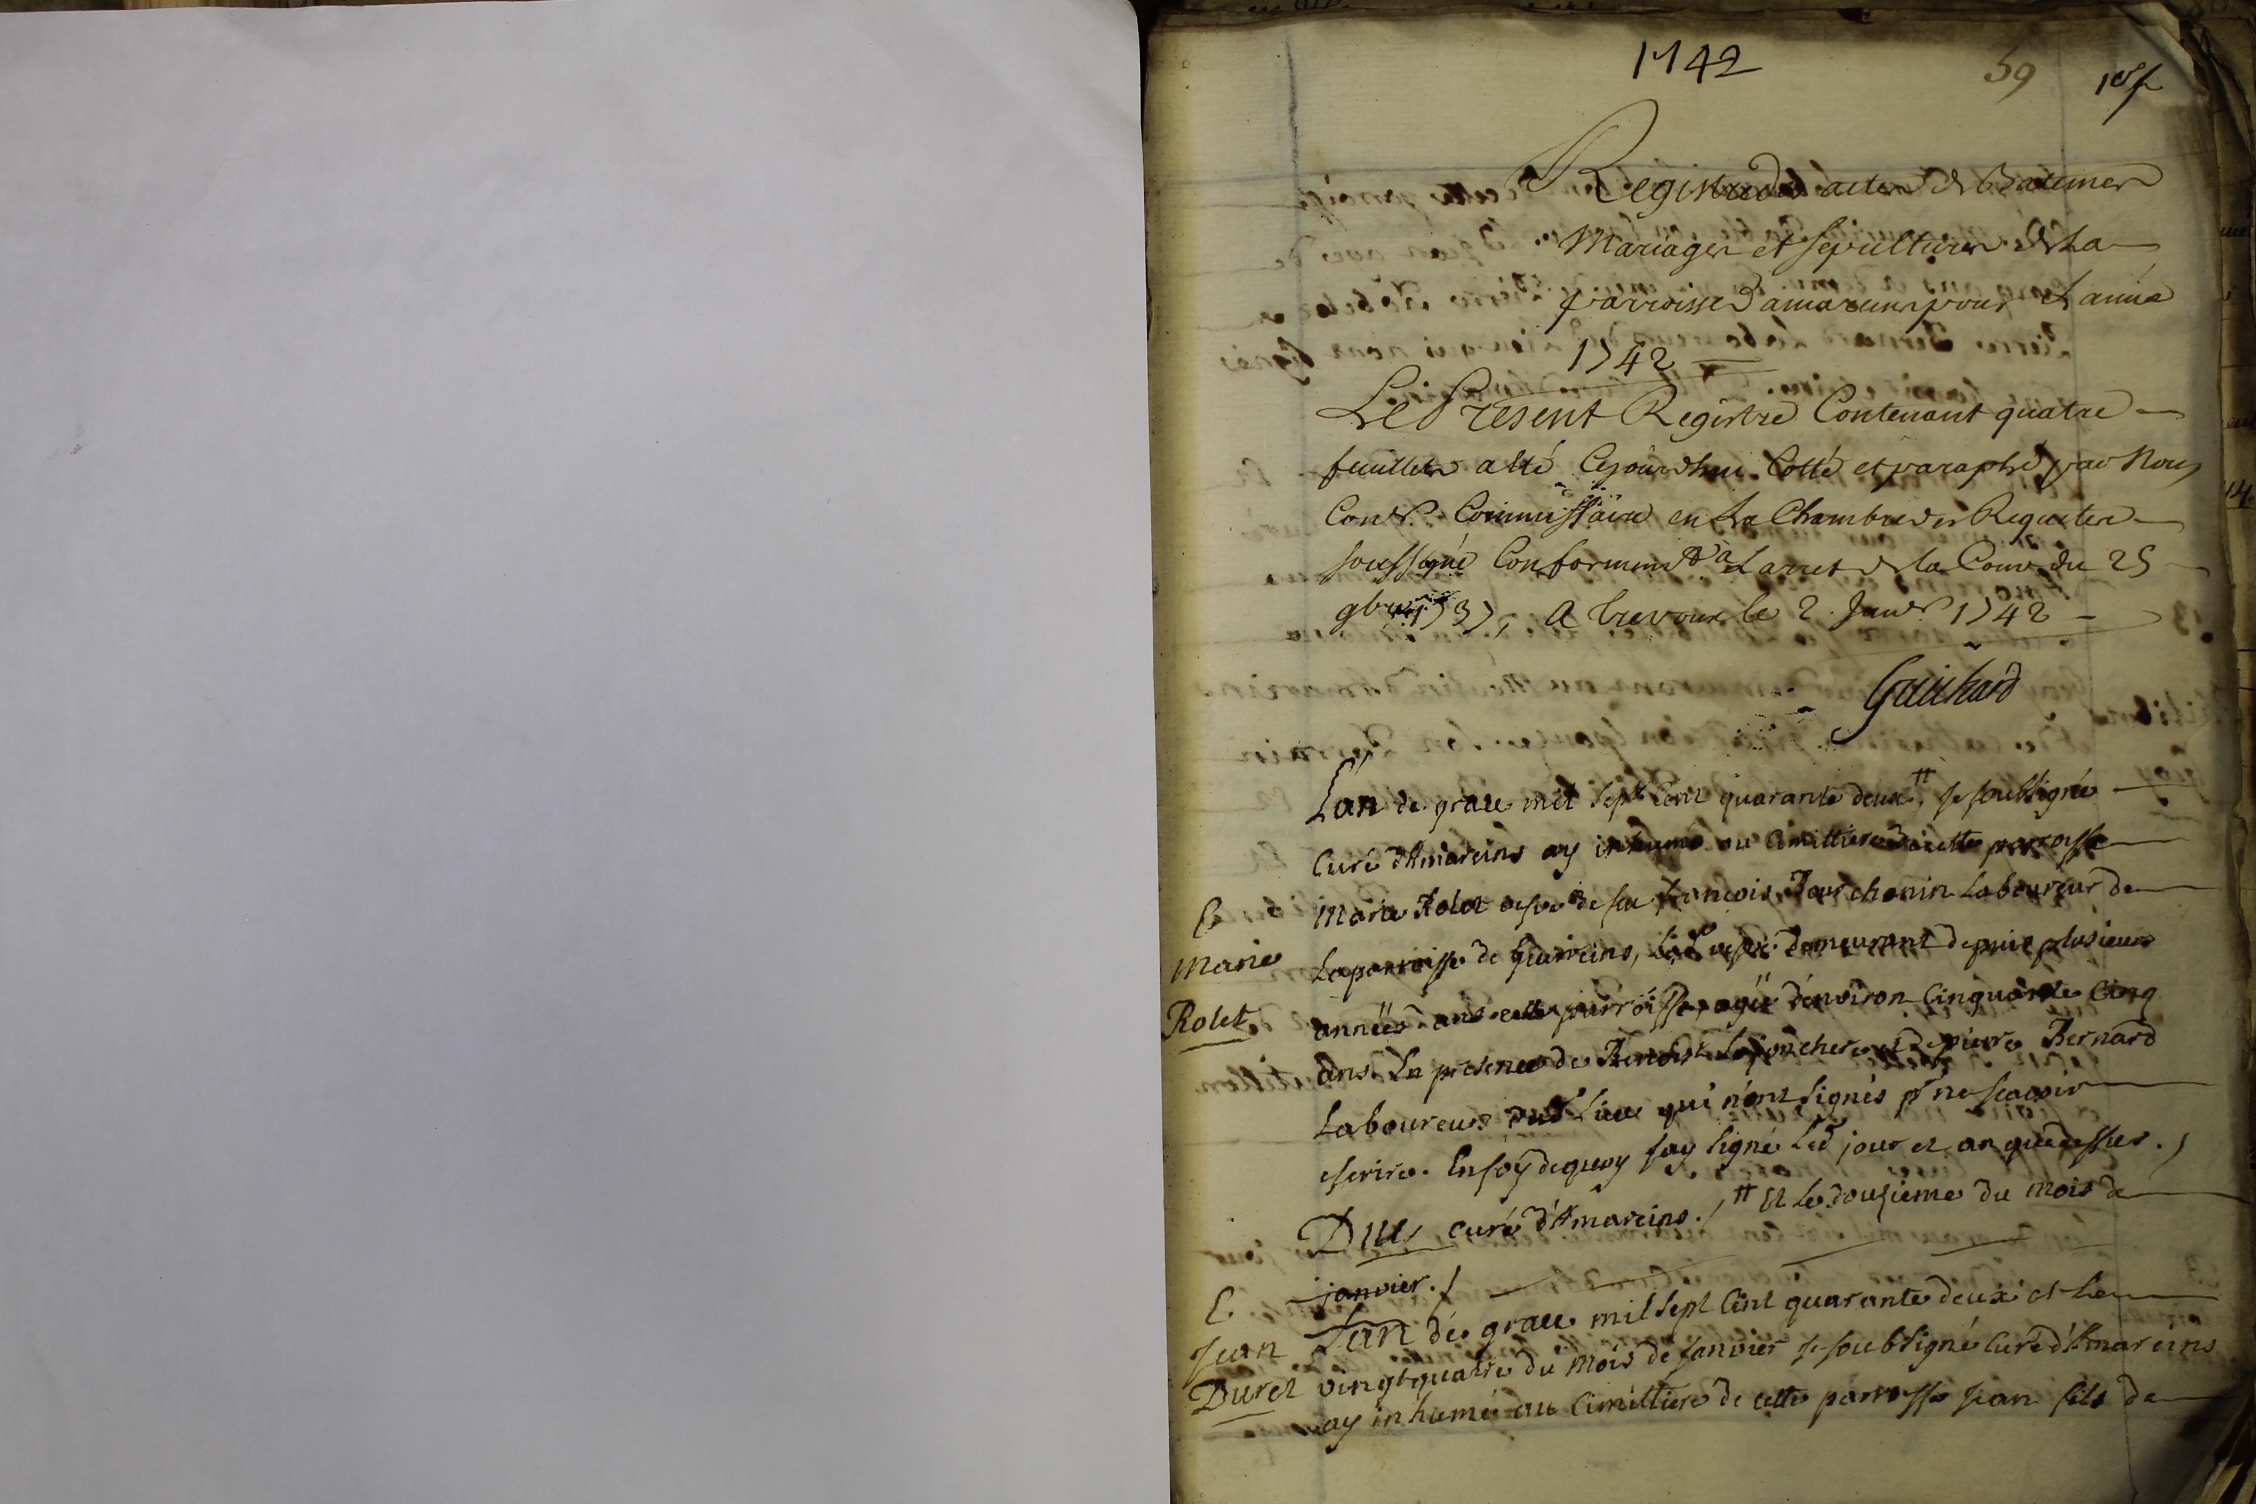 1742
59
1er f
Registre des actes de Batemes
Mariages et sepultures de la
parroisse damareins pour L'année
1742
Le Present Registre Contenant quatre
feuillets a été Cejourdhui Cotté et paraphé par Nous
Conser Commissaire en la Chambre des Requetes
soussigné Conformemt a L'arret de la Cour du 25
9bre 1737, A Trevoux le 2 Janvr 1742
Guichard
L'an de grace mil sept cent quarante deux, # Je soubsigné
Curé d'Amareins ay inhumé au Cimittiere de cette parroisse
C.
Marie
Rolet
Marie Rolet vefve de feu françois Jourchonin Laboureur de
La parroisse de Guerreins, Lad vefve demeurant depuis plusieurs
années dans cette parroisse, agée d'environ Cinquante Cinq
ans. En presence de Benoist Lafonchere et de pierre Bernard
Laboureurs dud lieu qui n'ont signés pr ne scavoir
escrire. En foÿ de quoy jay signé Led jour et an que dessus.
Dues curé d'Amareins. # Et Le douzieme du mois de
janvier.
C.
Jean
Duret
L'an de grace mil sept Cent quarante deux et Le
vingt quatre du mois de Janvier Je soubsigné Curé d'Amareins
ay inhumé au Cimittiere de cette parroisse Jean fils de